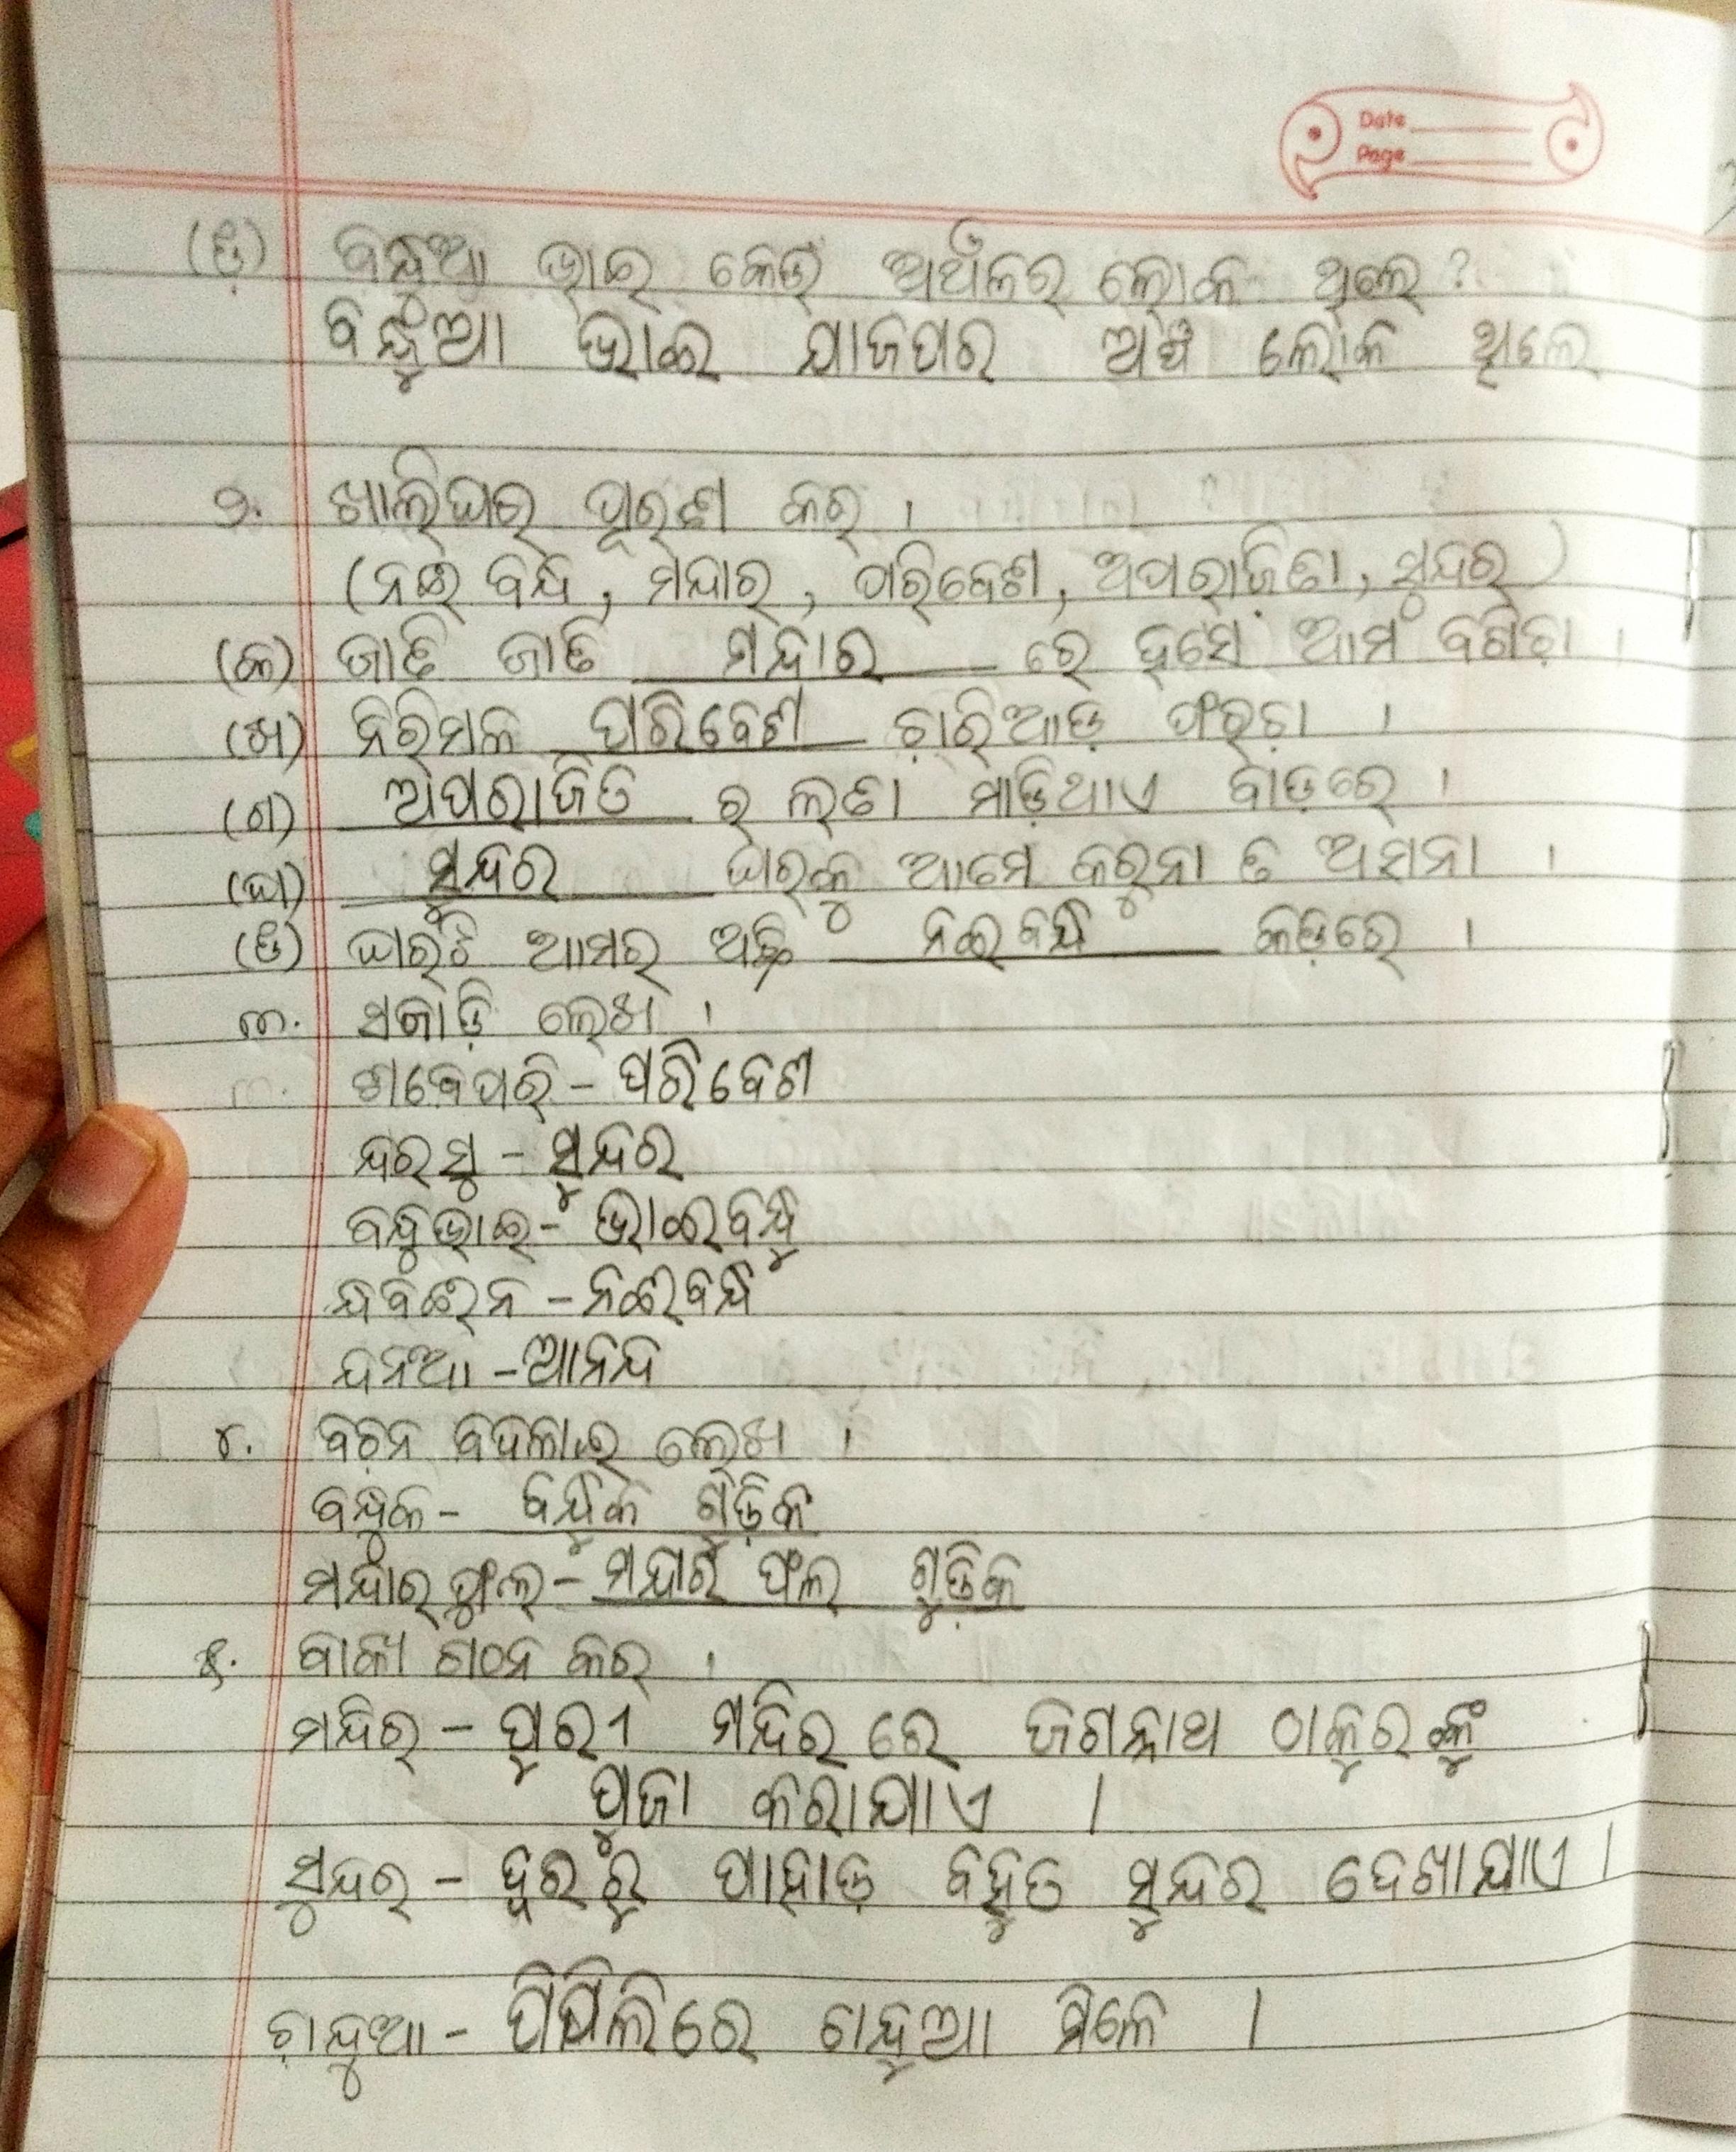 Date
Page
(ଙ) ବନ୍ଧୁଆ ଭାଇ କେଉଁ ଅଞ୍ଚଳର ଲୋକ ଥିଲେ ?
ବନ୍ଧୁଆ ଭାଇ ଯାଜପର ଅଞ୍ଚ ଲୋକ ଥିଲେ
୨. ଖାଲିଘର ପୂରଣ କର ।
(ନଈ ବନ୍ଧ, ମନ୍ଦାର, ପରିବେଶ, ଅପରାଜିତା, ସୁନ୍ଦର)
(କ) ଜାତି ଜାତି ମନ୍ଦାର ରେ ହସେ ଆମ ବଗିଚା ।
(ଖ) ନିରିମଳ ପରିବେଶ ଚାରିଆଡ଼ ଫରଚା ।
(ଗ) ଅପରାଜିତ ର ଲତା ମାଡ଼ିଥାଏ ବାଡ଼ରେ ।
(ଘ) ସୁନ୍ଦର ଘରକୁ ଆମେ କରୁନା ତ ଅସନା ।
(ଙ) ଘରଟି ଆମର ଅଛି ନଇବନ୍ଧ କଡ଼ରେ ।
୩. ସଜାଡ଼ି ଲେଖ ।
ଶବେପରି - ପରିବେଶ
ନ୍ଦରସୁ - ସୁନ୍ଦର
ବନ୍ଧୁଭାଇ - ଭାଇବନ୍ଧୁ
ନ୍ଧବଈନ - ନଈବନ୍ଧ
ନ୍ଦନଆ - ଆନନ୍ଦ
୪. ବଚନ ବଦଳାଇ ଲେଖ ।
ବନ୍ଧୁକ - ବନ୍ଧୁକ ଗୁଡ଼ିକ
ମନ୍ଦାର ଫୁଲ - ମନ୍ଦାର ଫଲ ଗୁଡ଼ିକ
୫. ବାକ୍ୟ ଗଠନ କର ।
ମନ୍ଦିର - ପୁରୀ ମନ୍ଦିର ରେ ଜଗନ୍ନାଥ ଠାକୁରଙ୍କୁ
ପୁଜା କରାଯାଏ ।
ସୁନ୍ଦର - ଦୁରରୁ ପାହାଡ ବହୁତ ସୁନ୍ଦର ଦେଖାଯାଏ ।
ଚାନ୍ଦୁଆ - ପିପିଲିରେ ଚାନ୍ଦୁଆ ମିଳେ ।